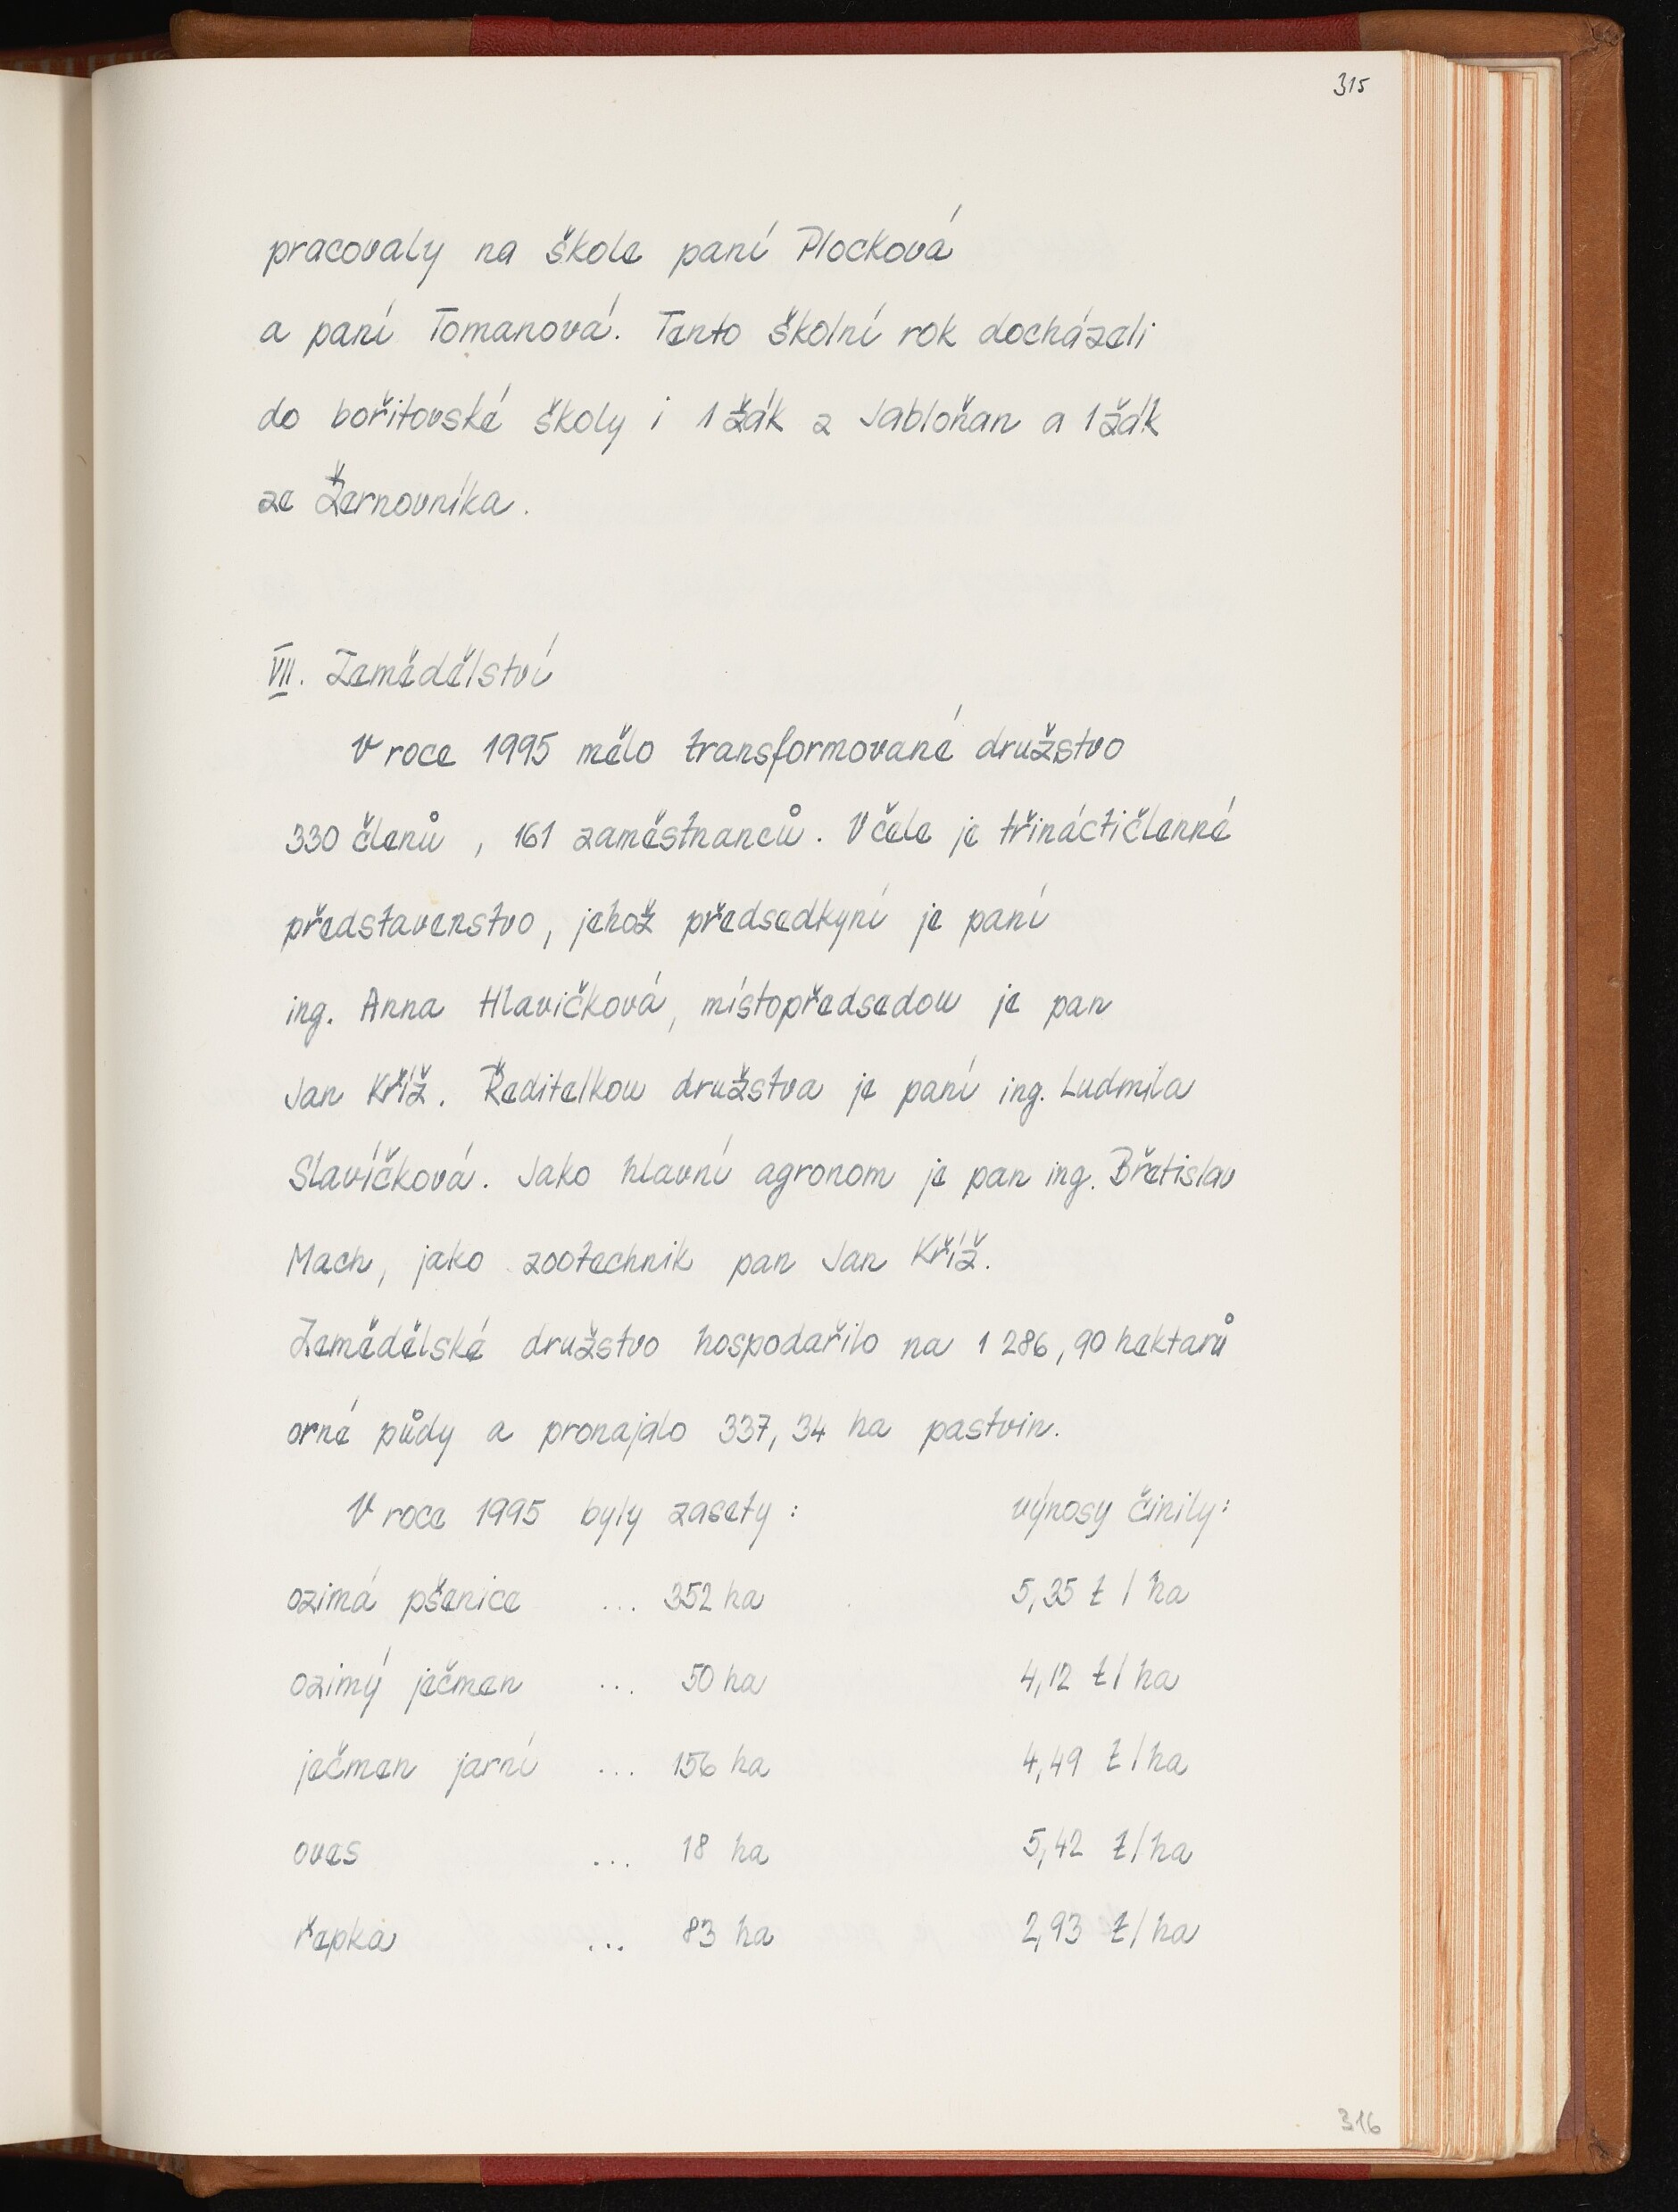 315
pracovaly na škole paní Plocková
a paní Tomanová. Tento školní rok docházeli
do bořitovské školy i 1 žák z Jabloňan a 1 žák
ze Žernovníka.
VII. Zemědělství
V roce 1995 mělo transformované družstvo
330 členů , 161 zaměstnanců. V čele je třináctičlenné
představenstvo, jehož předsedkyní je paní
ing. Anna Hlavičková, místopředsedou je pan
Jan Kříž. Ředitelkou družstva je paní ing. Ludmila
Slavíčková. Jako hlavní agronom je pan ing. Břetislav
Mach, jako zootechnik pan Jan Kříž.
Zemědělské družstvo hospodařilo na 1 286,90 hektarů
orné půdy a pronajalo 337,34 ha pastvin.
V roce 1995 byly zasety : výnosy činily:
ozimá pšenice ... 352 ha 5,35 t / ha
ozimý ječmen ... 50 ha 4,12 t/ ha
ječmen jarní ... 156 ha 4,49 t/ha
oves ... 18 ha 5,42 t/ha
řepka ... 83 ha 2,93 t/ha
316